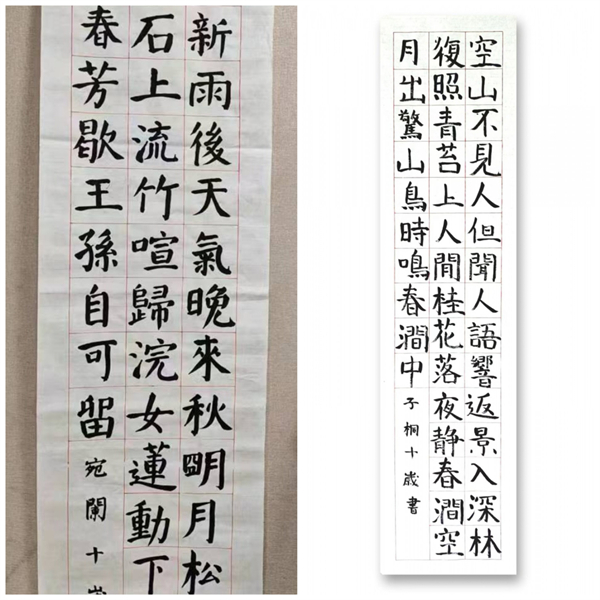 新雨後天氣晚來秋明月松
石上流竹喧歸浣女蓮動下
春芳歇王孫自可留
宛闌十
空山不見人但聞人語響返景入深林
復照青苔上人間桂花落夜静春澗空
月出驚山鳥時鳴春澗中
子桐十歲書